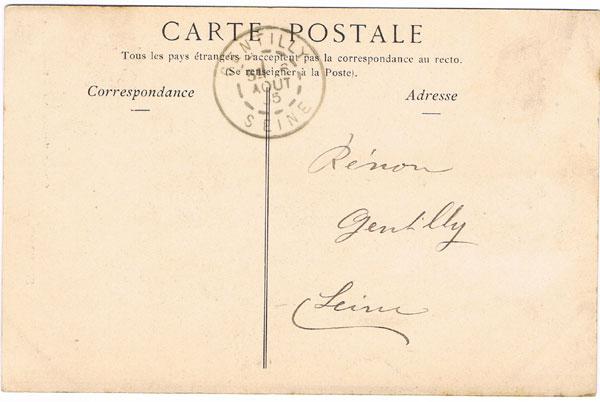 CARTE POSTALE
Tous les pays étrangers n'acceptent pas la correspondance au recto.
(Se renseigner à la Poste).
Correspondance
Adresse
GENTILLY
AOUT
SEINE
Rénon
Gentilly
Seine